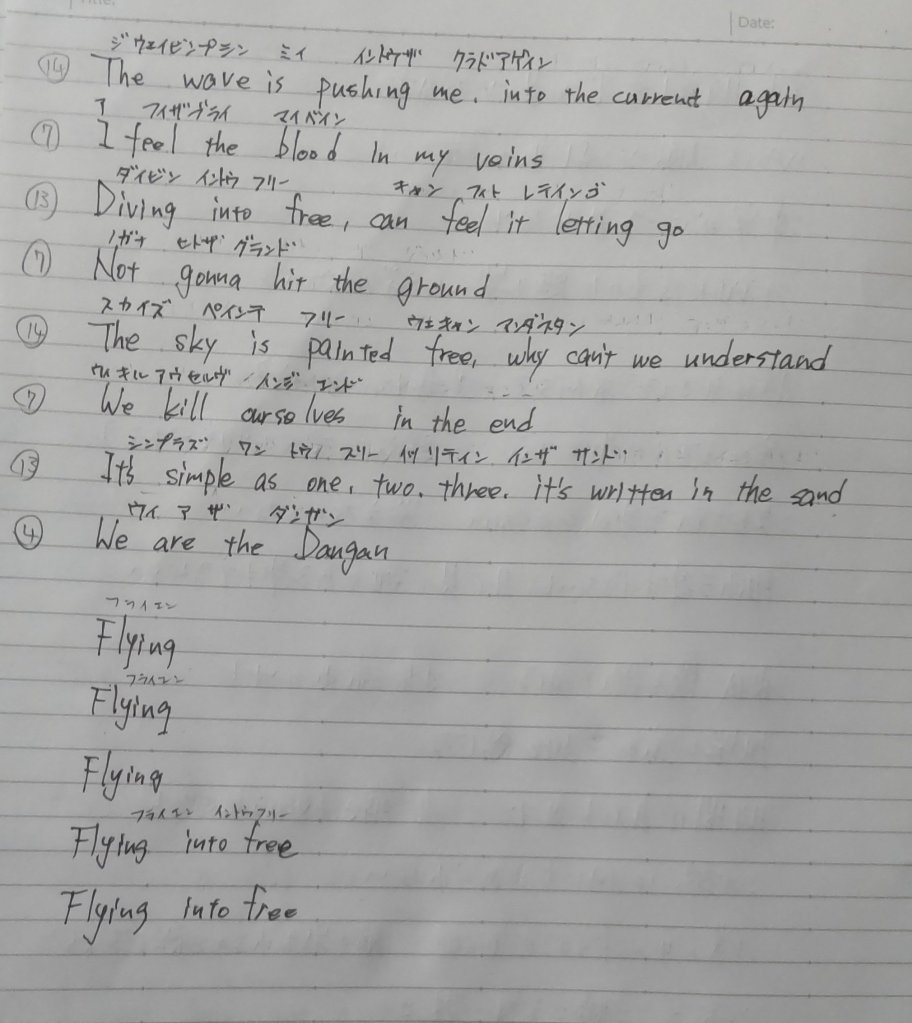 Date:
ジウェイビンプシン ミィ イントウザ クラドアゲイン
⑭ The wave is pushing me. into the current again
ア フィザブライ マイベイン
⑦ I feel the blood in my veins
ダイビン イントウ フリー キャン フィト レティンゴ
⑬ Diving into free, can feel it letting go
ノガナ ヒトザ グランド
⑦ Not gonna hit the ground
スカイズ ペインテ フリー ウェキャン アンダスタン
⑭ The sky is painted free, why can't we understand
ウィキル アウセルヴ インジ エンド
⑦ We kill ourselves in the end
シンプラズ ワン トゥ スリー イツリティン インザ サンド
⑬ It's simple as one, two. three. it's written in the sand
ウィ ア ザ ダンガン
④ We are the Dangan
フライエン
Flying
フライエン
Flying
Flying
フライエン イントウフリー
Flying into free
Flying into free